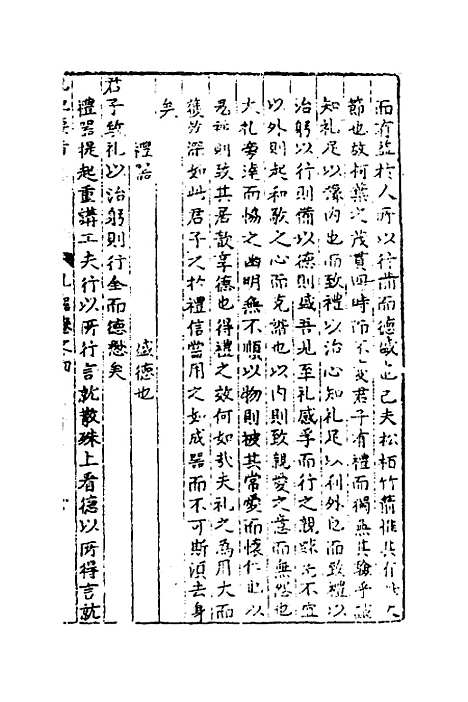 而有筠於人所以行備而德盛也已夫松栢竹箭惟其有此大
節也故柯葉之茂貫四時而不變君子有禮而獨無其驗乎誠
知礼足以澤內也而致禮以治心知礼足以利外也而致禮以
治躬以行則備以德則盛吾見至礼感孚而行之親踈無不宜
以外則起和敬之心而克諧也以內則致親愛之意而無怨也
大礼旁達而協之幽明無不順以物則被其常愛而懷仁也以
鬼神則致其居歆享德也得禮之效何如哉夫礼之為用大而
獲效深如此君子之於禮信當用之如成器而不可斯湏去身
矣
禮器
盛德也
君子致礼以治躬則行全而德懋矣
禮器提起重講工夫行以所行言就散殊上看德以所得言就